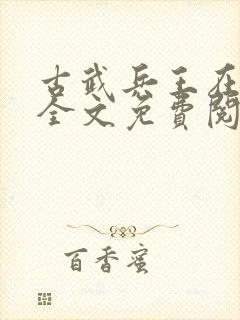 古武兵王在
全文免费阅
百香蜜